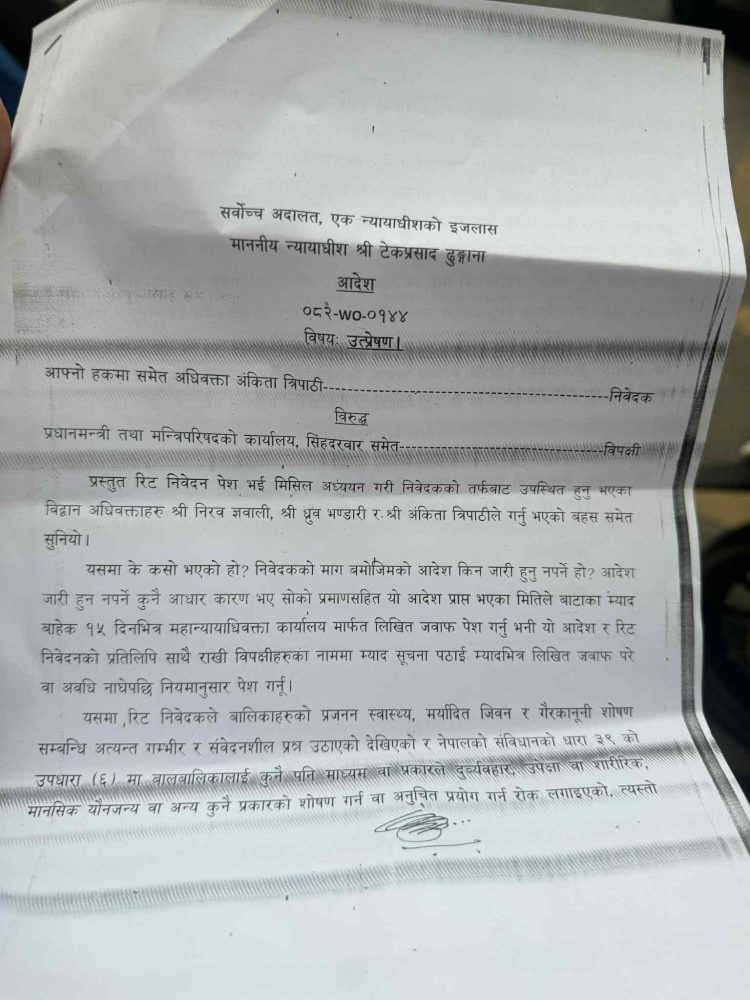 सर्वोच्च अदालत, एक न्यायाधीशको इजलास
माननीय न्यायाधीश श्री टेकप्रसाद ढुङ्गाना
आदेश
०८२-WO-०१४४
विषयः उत्प्रेषण।
आफ्नो हकमा समेत अधिवक्ता अंकिता त्रिपाठी----------------------------------------------निवेदक
विरुद्ध
प्रधानमन्त्री तथा मन्त्रिपरिषदको कार्यालय, सिंहदरवार समेत---------------------------------विपक्षी
प्रस्तुत रिट निवेदन पेश भई मिसिल अध्ययन गरी निवेदकको तर्फबाट उपस्थित हुनु भएका
विद्वान अधिवक्ताहरु श्री निरव ज्ञवाली, श्री ध्रुव भण्डारी र श्री अंकिता त्रिपाठीले गर्नु भएको बहस समेत
सुनियो।
यसमा के कसो भएको हो? निवेदकको माग बमोजिमको आदेश किन जारी हुनु नपर्ने हो? आदेश
जारी हुन नपर्ने कुनै आधार कारण भए सोको प्रमाणसहित यो आदेश प्राप्त भएका मितिले बाटाका म्याद
बाहेक १५ दिनभित्र महान्यायाधिवक्ता कार्यालय मार्फत लिखित जवाफ पेश गर्नु भनी यो आदेश र रिट
निवेदनको प्रतिलिपि साथै राखी विपक्षीहरुका नाममा म्याद सूचना पठाई म्यादभित्र लिखित जवाफ परे
वा अवधि नाघेपछि नियमानुसार पेश गर्नू।
यसमा रिट निवेदकले बालिकाहरुको प्रजनन स्वास्थ्य, मर्यादित जिवन र गैरकानूनी शोषण
सम्बन्धि अत्यन्त गम्भीर र संवेदनशील प्रश्न उठाएको देखिएको र नेपालको संविधानको धारा ३९ को
उपधारा (६) मा बालबालिकालाई कुनै पनि माध्यम वा प्रकारले दुर्व्यवहार, उपेक्षा वा शारीरिक,
मानसिक यौनजन्य वा अन्य कुनै प्रकारको शोषण गर्न वा अनुचित प्रयोग गर्न रोक लगाइएको, त्यस्तो